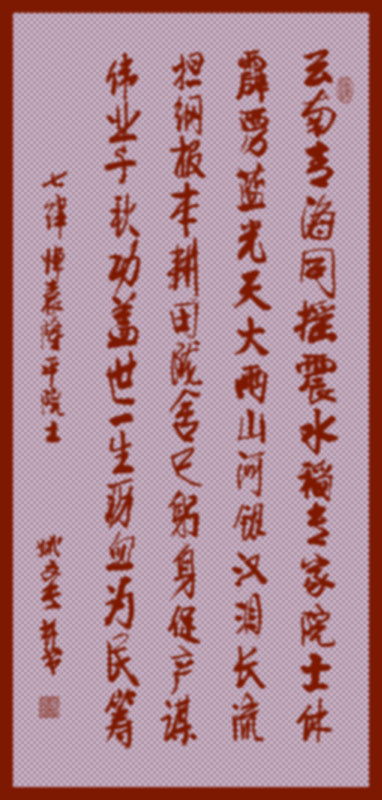 云南青海同摇震水稻专家院士休
霹雳蓝光天大雨山河银汉泪长流
担纲报本耕田陇舍己躬身促产谋
伟业千秋功盖世一生沥血为民筹
七律悼袁隆平院士